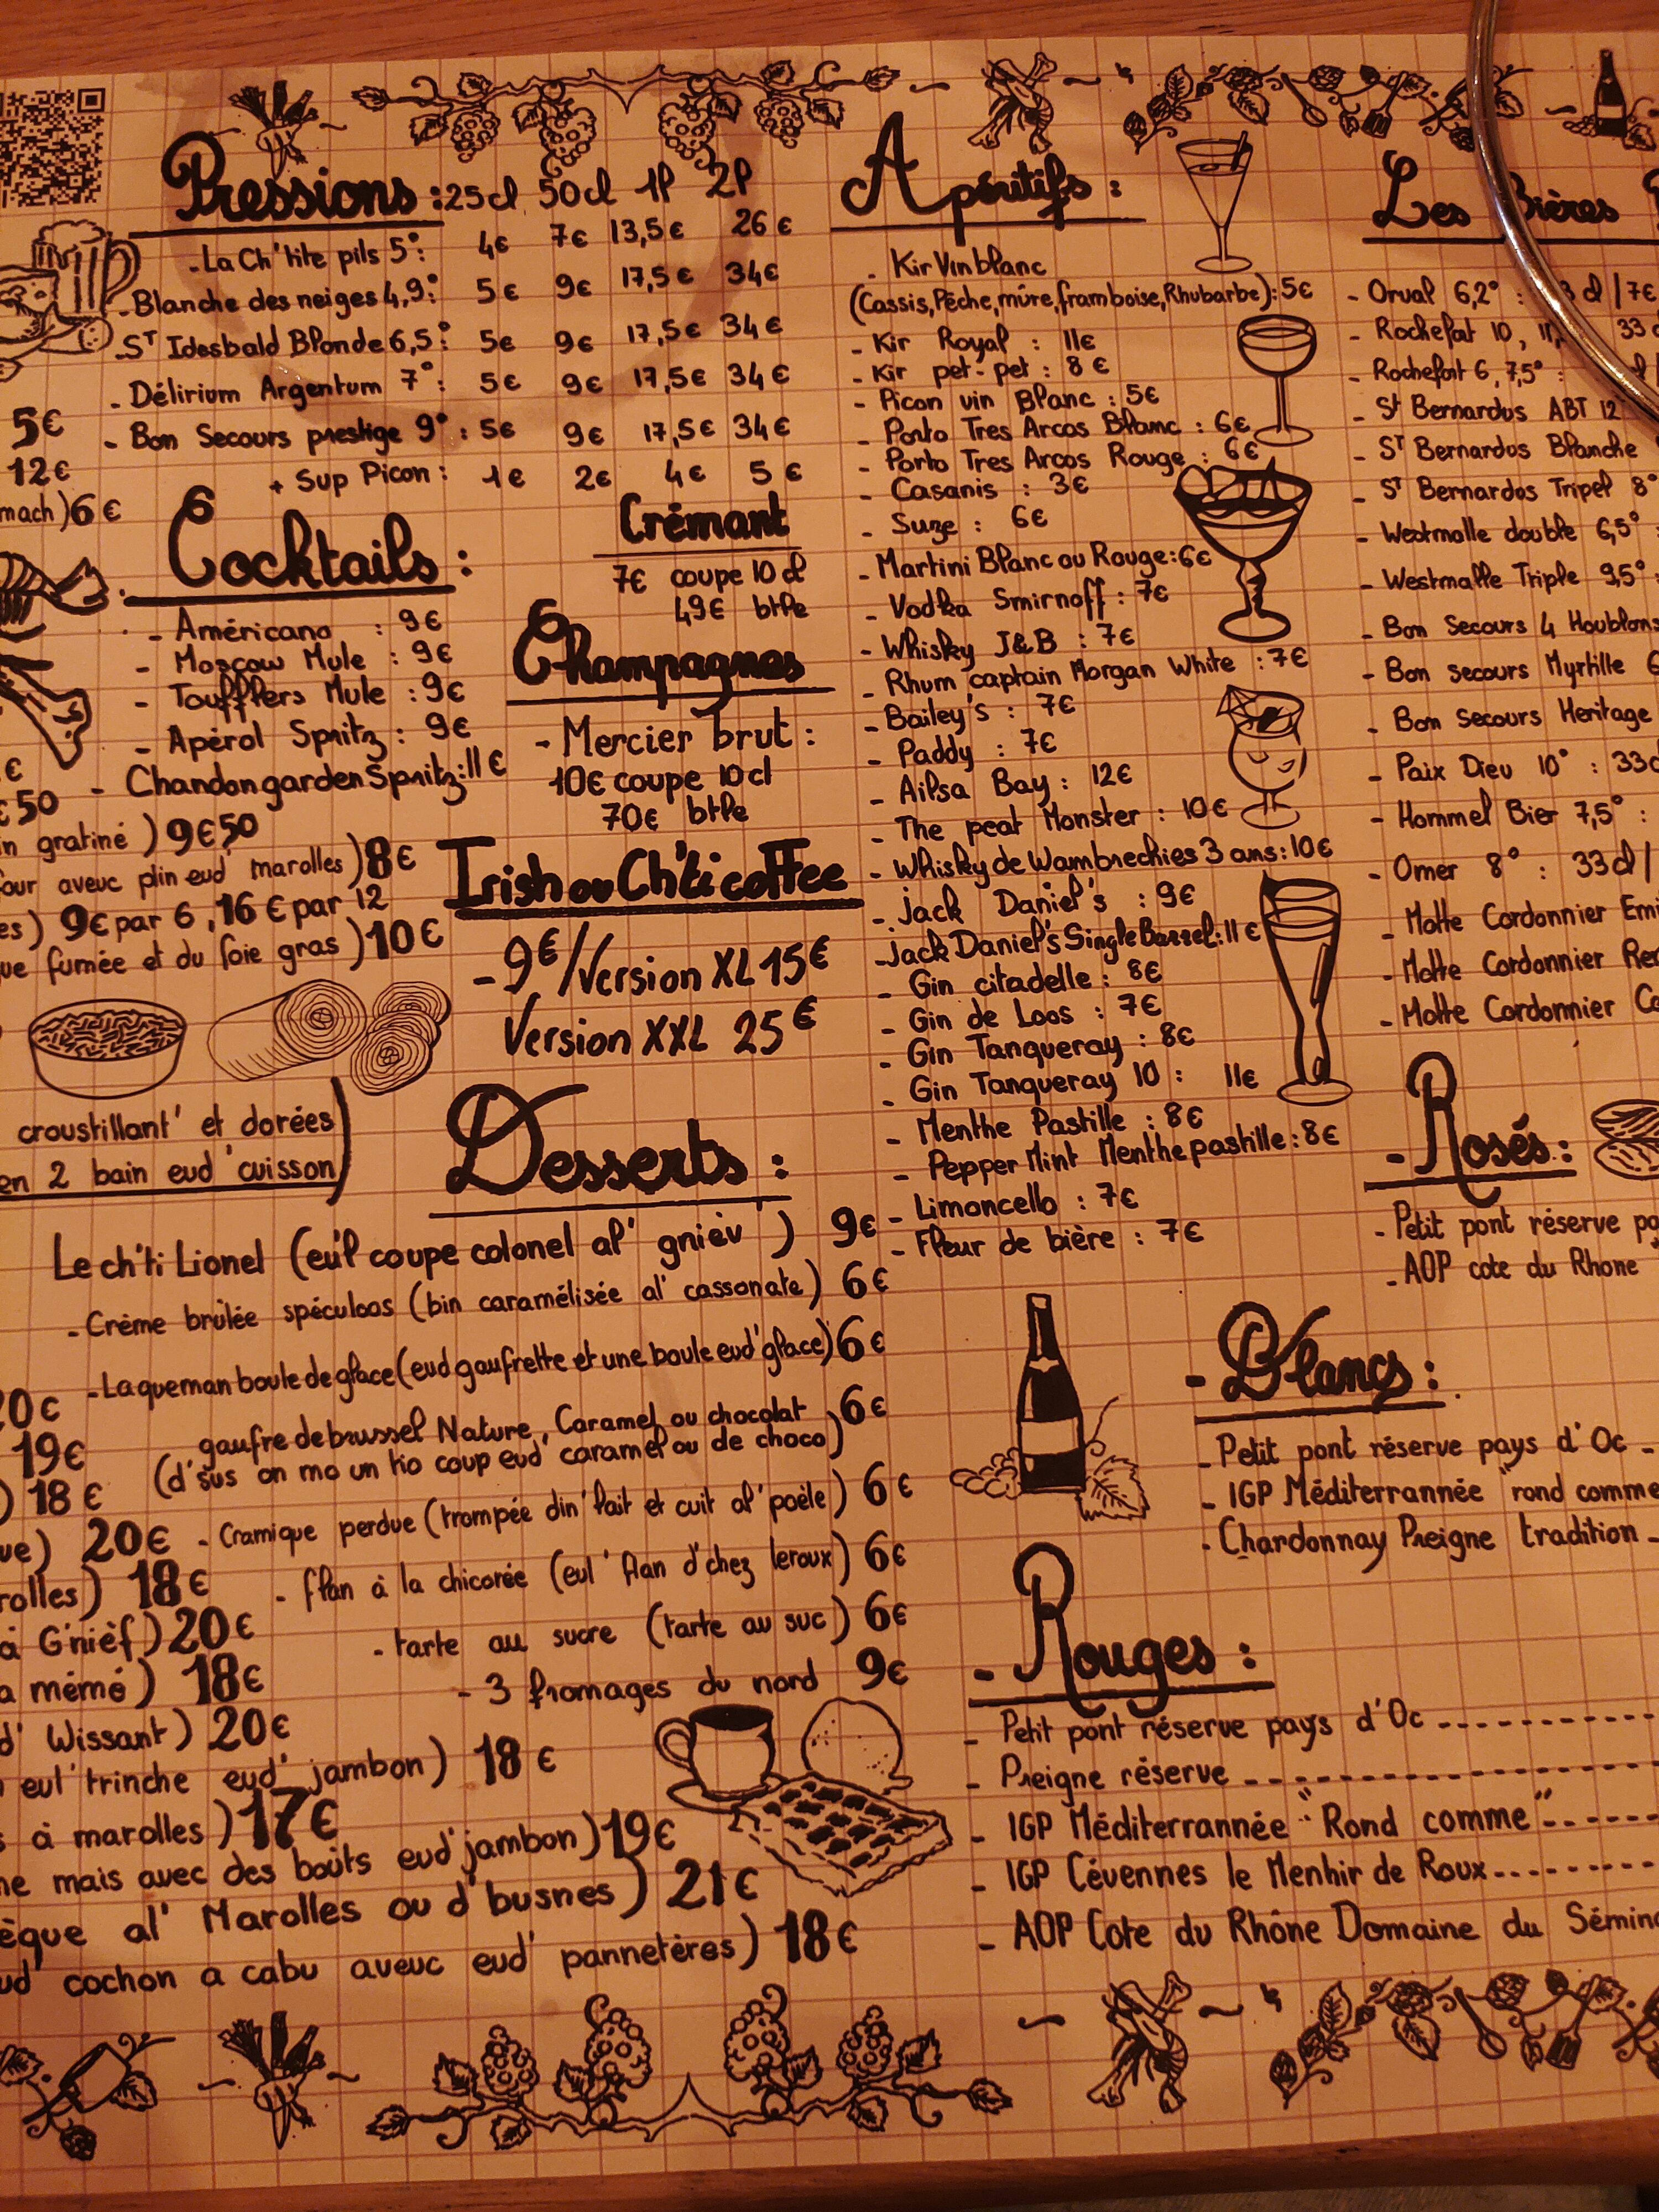 Pressions : 25cl 50cl 1l 2l
- La Ch'tite pils 5° : 4€ 7€ 13,5€ 26€
- Blanche des neiges 4,9° : 5€ 9€ 17,5€ 34€
- ST Idesbald Blonde 6,5° : 5€ 9€ 17,5€ 34€
- Délirium Argentum 7° : 5€ 9€ 17,5€ 34€
- Bon Secours prestige 9° : 5€ 9€ 17,5€ 34€
+ Sup Picon : 1€ 2€ 4€ 5€
5€
12€
mach) 6€
Cocktails :
- Américano : 9€
- Moscow Mule : 9€
- Toufflers Mule : 9€
- Apérol Spritz : 9€
- Chandon garden Spritz : 11€
Crémant
7€ coupe 10cl
49€ btle
Champagnes
- Mercier brut :
10€ coupe 10cl
70€ btle
€
€50
n gratiné) 9€50
our aveuc plin eud' marolles) 8€
es) 9€ par 6, 16€ par 12
ue fumée et du foie gras) 10€
Irish ou Ch'ti coffee
- 9€/Version XL 15€
Version XXL 25€
croustillant' et dorées
en 2 bain eud' cuisson)
Desserts :
Le ch'ti Lionel (eu'l coupe colonel al' gnièv') 9€
- Crème brûlée spéculoos (bin caramélisée al' cassonate) 6€
- Laqueman boule de glace (eud gaufrette et une boule eud' glace) 6€
gaufre de brussel Nature, Caramel ou chocolat 6€
(d'sus on mo un tio coup eud' caramel ou de choco)
- Cramique perdue (trompée din' lait et cuit al' poële) 6€
- flan à la chicorée (eul' flan d'chez leroux) 6€
- tarte au sucre (tarte au suc) 6€
- 3 fromages du nord 9€
20€
19€
) 18€
ue) 20€
rolles) 18€
à G'nièf) 20€
a mémé) 18€
d' Wissant) 20€
eul' trinche eud' jambon) 18€
s à marolles) 17€
ne mais avec des boûts eud' jambon) 19€
èque al' Marolles ou d'busnes) 21€
ud' cochon a cabu aveuc eud' pannetères) 18€
Apéritifs :
- Kir Vin blanc
(Cassis, Pêche, mûre, framboise, Rhubarbe) : 5€
- Kir Royal : 11€
- Kir pet-pet : 8€
- Picon vin Blanc : 5€
- Porto Tres Arcos Blanc : 6€
- Porto Tres Arcos Rouge : 6€
- Casanis : 3€
- Suze : 6€
- Martini Blanc ou Rouge : 6€
- Vodka Smirnoff : 7€
- Whisky J&B : 7€
- Rhum captain Morgan White : 7€
- Bailey's : 7€
- Paddy : 7€
- Ailsa Bay : 12€
- The peat Monster : 10€
- Whisky de Wambrechies 3 ans : 10€
- Jack Daniel's : 9€
- Jack Daniel's Single Barrel : 11€
- Gin citadelle : 8€
- Gin de Loos : 7€
- Gin Tanqueray : 8€
- Gin Tanqueray 10 : 11€
- Menthe Pastille : 8€
- Pepper Mint Menthe pastille : 8€
- Limoncello : 7€
- Fleur de bière : 7€
Les Bières
- Orval 6,2° : 3 cl / 7€
- Rochefort 10, 11, 33
- Rochefort 6, 7,5° :
- St Bernardus ABT 12
- ST Bernardus Blanche
- ST Bernardus Tripel 8°
- Westmalle double 6,5° :
- Westmalle Triple 9,5° :
- Bon Secours 4 Houblons
- Bon secours Myrtille 6
- Bon Secours Heritage
- Paix Dieu 10° : 33c
- Hommel Bier 7,5° :
- Omer 8° : 33cl /
- Motte Cordonnier Emi
- Motte Cordonnier Re
- Motte Cordonnier Co
- Rosés :
- Petit pont réserve pa
- AOP cote du Rhone
- Blancs :
- Petit pont réserve pays d'Oc -
- IGP Méditerrannée "rond comme
- Chardonnay Preigne tradition -
- Rouges :
- Petit pont réserve pays d'Oc ----------
- Preigne réserve ----------
- IGP Méditerrannée "Rond comme" ------
- IGP Cévennes le Menhir de Roux --------
- AOP Cote du Rhône Domaine du Sémin